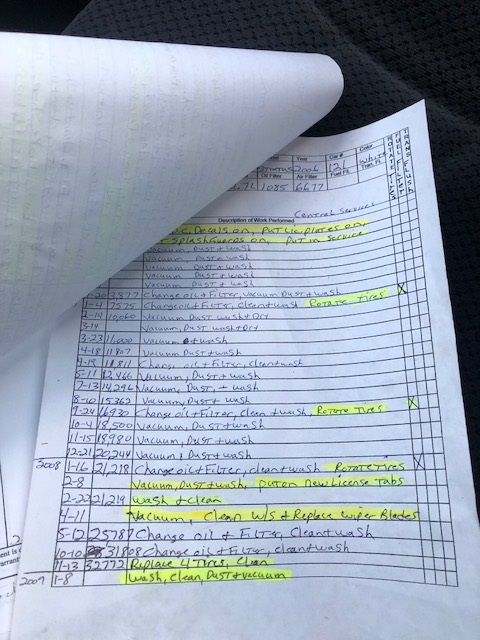 Year Car # Color
2006 12L White
Oil Filter Air Filter Fuel Ft. Tran. Ft.
1085 6677
ROTATE TIRES
FUEL FILTER
TRANS FLUSH
Central Service
Description of Work Performed
Decals on, Put Lic plates on
Splashguards on, Put in Service
Vacuum, Dust + wash
Vacuum, Dust + wash
Vacuum, Dust + wash
Vacuum, Dust + wash
Vacuum, Dust + wash
Change oil + Filter, Vacuum Dust + wash X
1-17 7575 Change oil + Filter, Clean + wash Rotate Tires
2-14 10,060 Vacuum Dust wash + Dry
3-14 Vacuum, Dust wash + Dry
3-23 Vacuum + wash
4-18 11807 Vacuum, Dust + wash
4-19 11,811 Change oil + Filter, Clean + wash
5-11 12,466 Vacuum, Dust + wash
7-13 14,296 Vacuum, Dust, + wash
8-10 15,362 Vacuum, Dust + wash
9-24 16,930 Change oil + Filter, Clean + wash, Rotate Tires X
10-4 18,500 Vacuum, Dust + wash
11-15 18,980 Vacuum, Dust + wash
12-21 20,244 Vacuum, Dust + wash
2008 1-16 21,218 Change oil + Filter, clean + wash Rotate Tires X
2-8 Vacuum, Dust, + wash, put on New License Tabs
2-22 21,219 wash + Clean
4-11 Vacuum, Clean W/S + Replace Wiper Blades
5-12 25787 Change oil + Filter, Clean + wash
10-10 31808 Change oil + Filter, Clean + wash
11-13 32772 Replace 4 Tires, Clean
2009 1-8 Wash, Clean, Dust + Vacuum